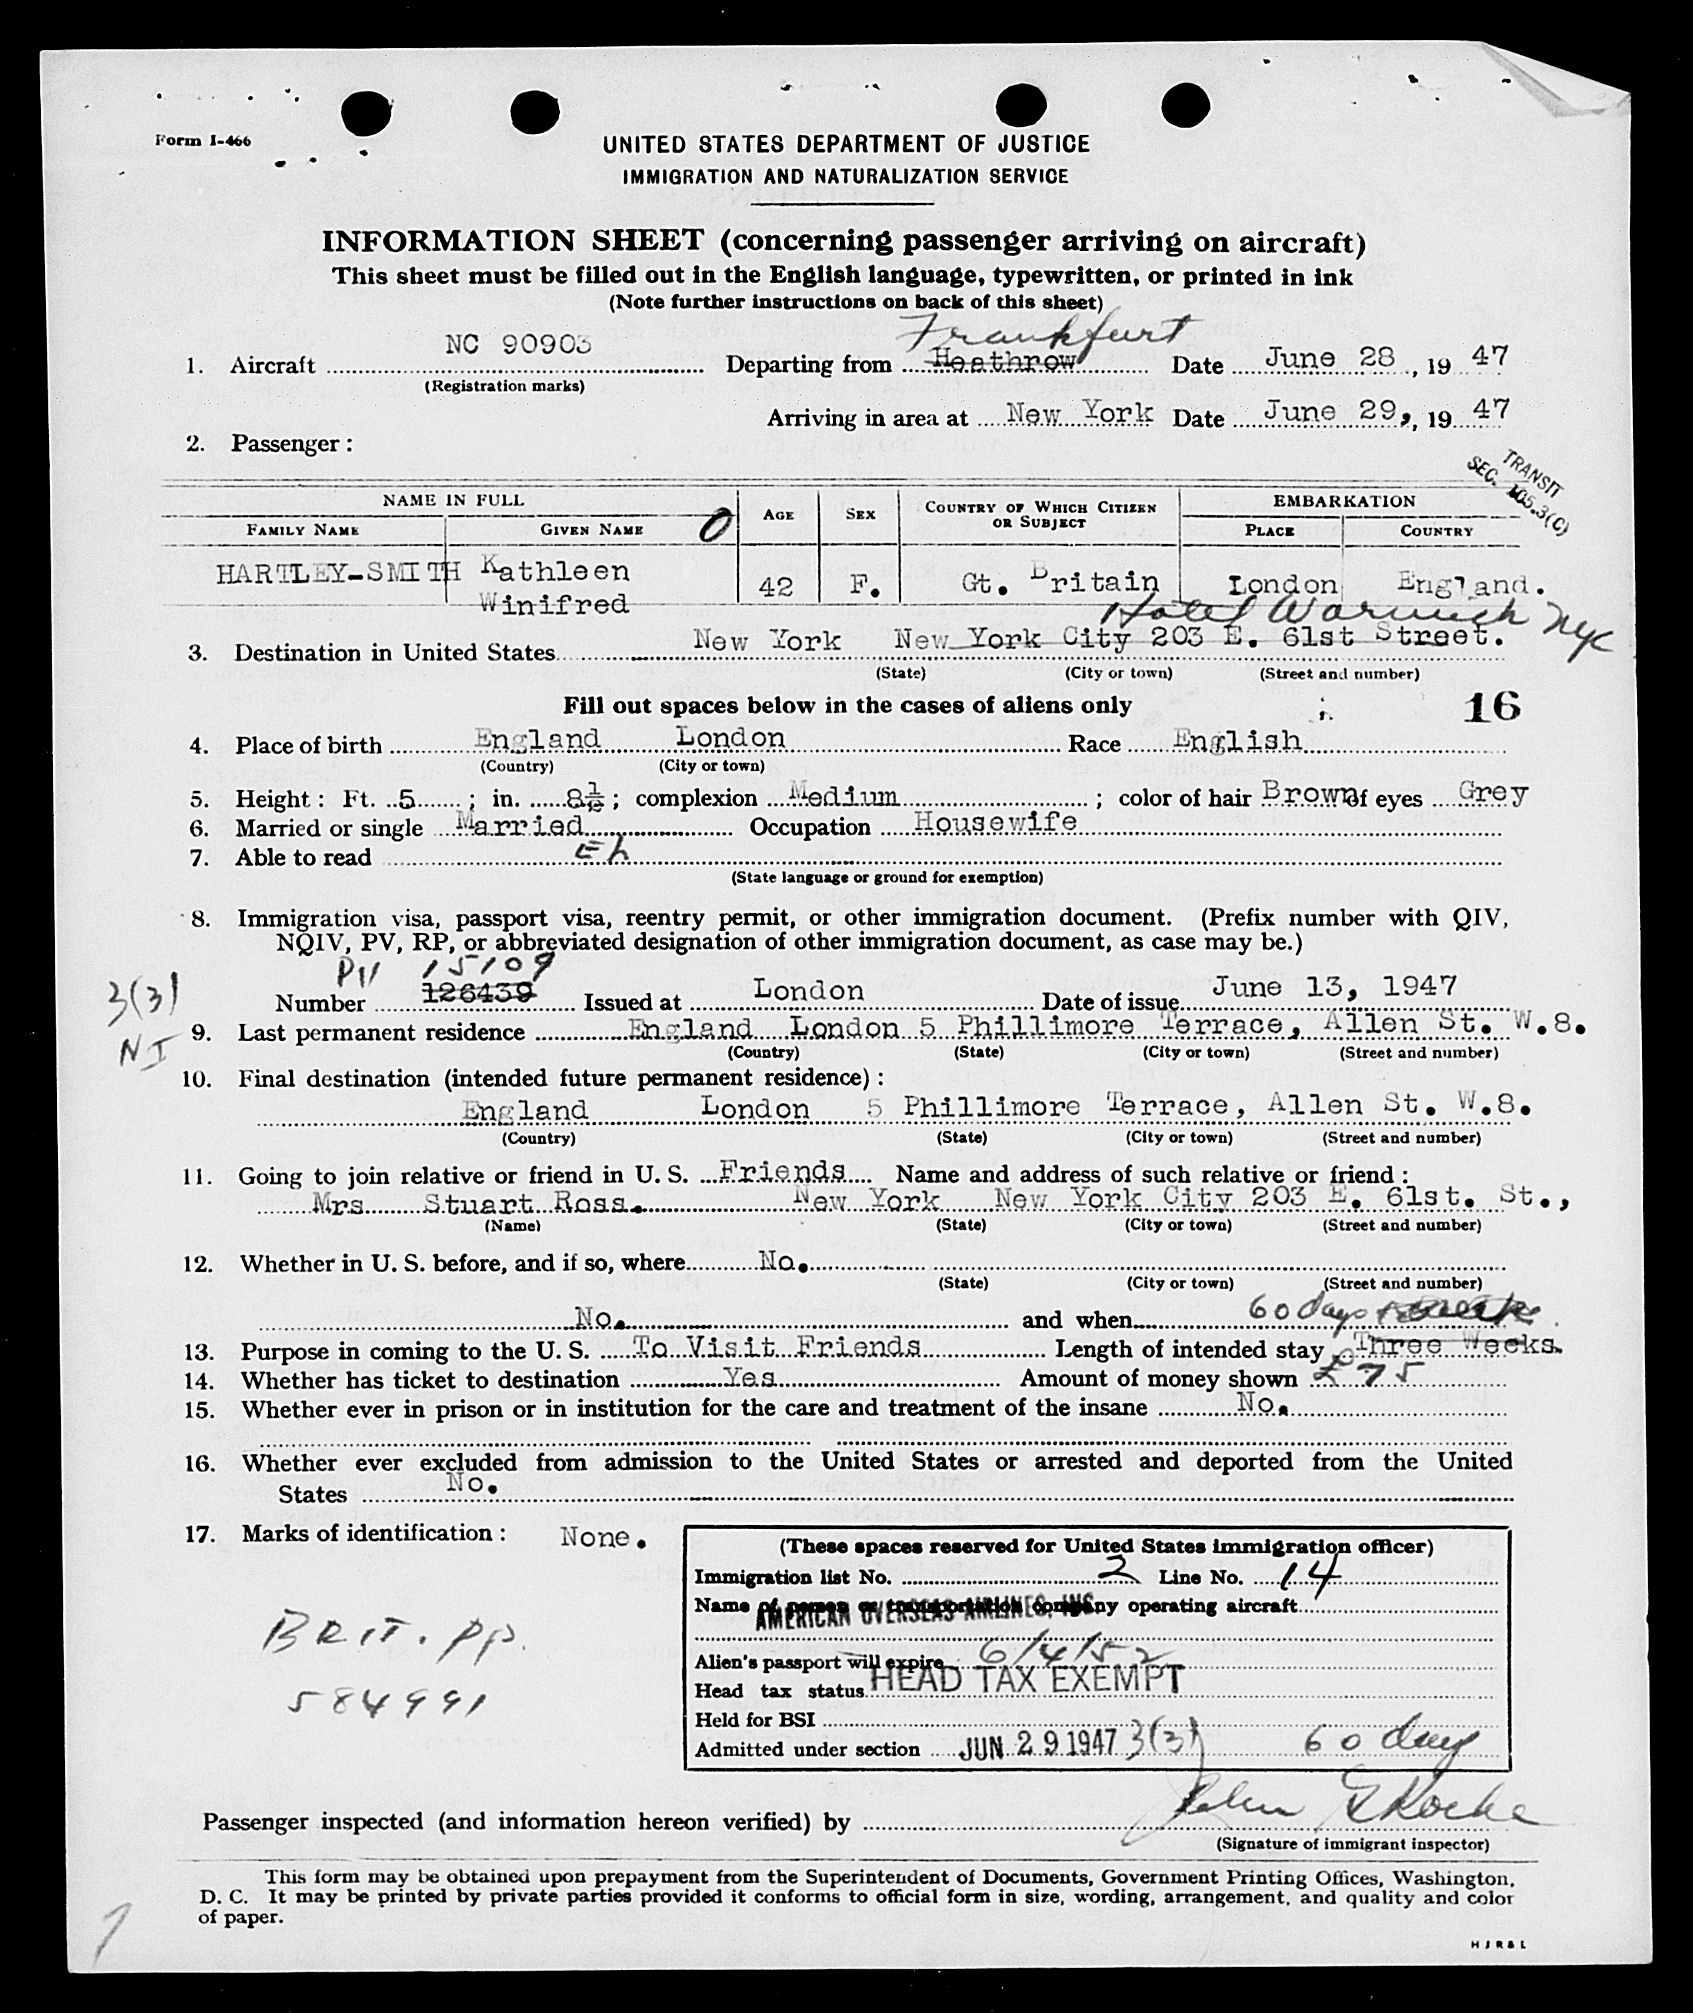 Form I-466
UNITED STATES DEPARTMENT OF JUSTICE
IMMIGRATION AND NATURALIZATION SERVICE
INFORMATION SHEET (concerning passenger arriving on aircraft)
This sheet must be filled out in the English language, typewritten, or printed in ink
(Note further instructions on back of this sheet)
Frankfurt
1. Aircraft NC 90903 Departing from Heathrow Date June 28, 19 47
(Registration marks)
Arriving in area at New York Date June 29, 19 47
2. Passenger:
TRANSIT
SEC. 105.3(C)
NAME IN FULL AGE SEX COUNTRY OF WHICH CITIZEN OR SUBJECT EMBARKATION
FAMILY NAME GIVEN NAME 0 PLACE COUNTRY
HARTLEY-SMITH Kathleen Winifred 42 F. Gt. Britain London England.
Hotel Warwick NYC
3. Destination in United States New York New York City 203 E. 61st Street.
(State) (City or town) (Street and number)
Fill out spaces below in the cases of aliens only 16
4. Place of birth England London Race English
(Country) (City or town)
5. Height: Ft. 5; in. 8½; complexion Medium; color of hair Brown of eyes Grey
6. Married or single Married Occupation Housewife
7. Able to read Eh
(State language or ground for exemption)
8. Immigration visa, passport visa, reentry permit, or other immigration document. (Prefix number with QIV,
NQIV, PV, RP, or abbreviated designation of other immigration document, as case may be.)
PV 15109
3(3)
Number 126439 Issued at London Date of issue June 13, 1947
NI
9. Last permanent residence England London 5 Phillimore Terrace, Allen St. W.8.
(Country) (State) (City or town) (Street and number)
10. Final destination (intended future permanent residence):
England London 5 Phillimore Terrace, Allen St. W.8.
(Country) (State) (City or town) (Street and number)
11. Going to join relative or friend in U. S. Friends Name and address of such relative or friend:
Mrs Stuart Ross. New York New York City 203 E. 61st. St.,
(Name) (State) (City or town) (Street and number)
12. Whether in U. S. before, and if so, where No.
(State) (City or town) (Street and number)
No. and when 60 days
13. Purpose in coming to the U. S. To Visit Friends Length of intended stay Three Weeks.
14. Whether has ticket to destination Yes Amount of money shown £75
15. Whether ever in prison or in institution for the care and treatment of the insane No.
16. Whether ever excluded from admission to the United States or arrested and deported from the United
States No.
17. Marks of identification: None.
(These spaces reserved for United States immigration officer)
Immigration list No. 2 Line No. 14
Name of person or transportation company operating aircraft
AMERICAN OVERSEAS AIRLINES, INC.
BRIT. PP.
584991
Alien's passport will expire 6/4/52
Head tax status HEAD TAX EXEMPT
Held for BSI
Admitted under section JUN 29 1947 3(3) 60 days
Passenger inspected (and information hereon verified) by
(Signature of immigrant inspector)
This form may be obtained upon prepayment from the Superintendent of Documents, Government Printing Offices, Washington,
D. C. It may be printed by private parties provided it conforms to official form in size, wording, arrangement, and quality and color
of paper.
H J R & L